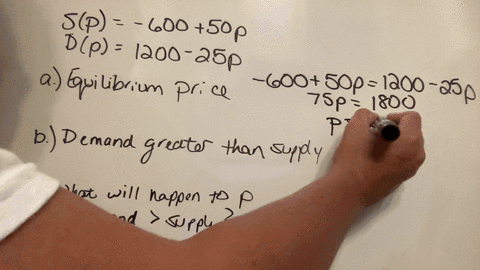 S(p) = -600 + 50p
D(p) = 1200 - 25p
a.) Equilibrium price
-600 + 50p = 1200 - 25p
75p = 1800
p =
b.) Demand greater than supply
what will happen to p
> supply?